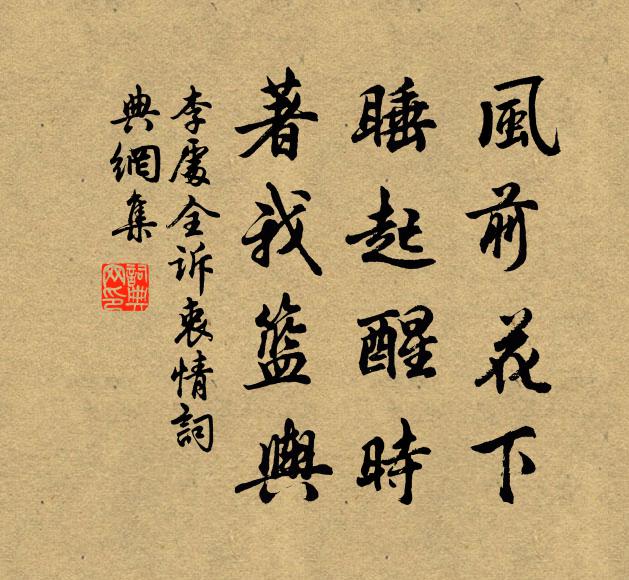 風前花下
睡起醒時
著我籃輿
李處全訴衷情詞
典網集
詞典
网印